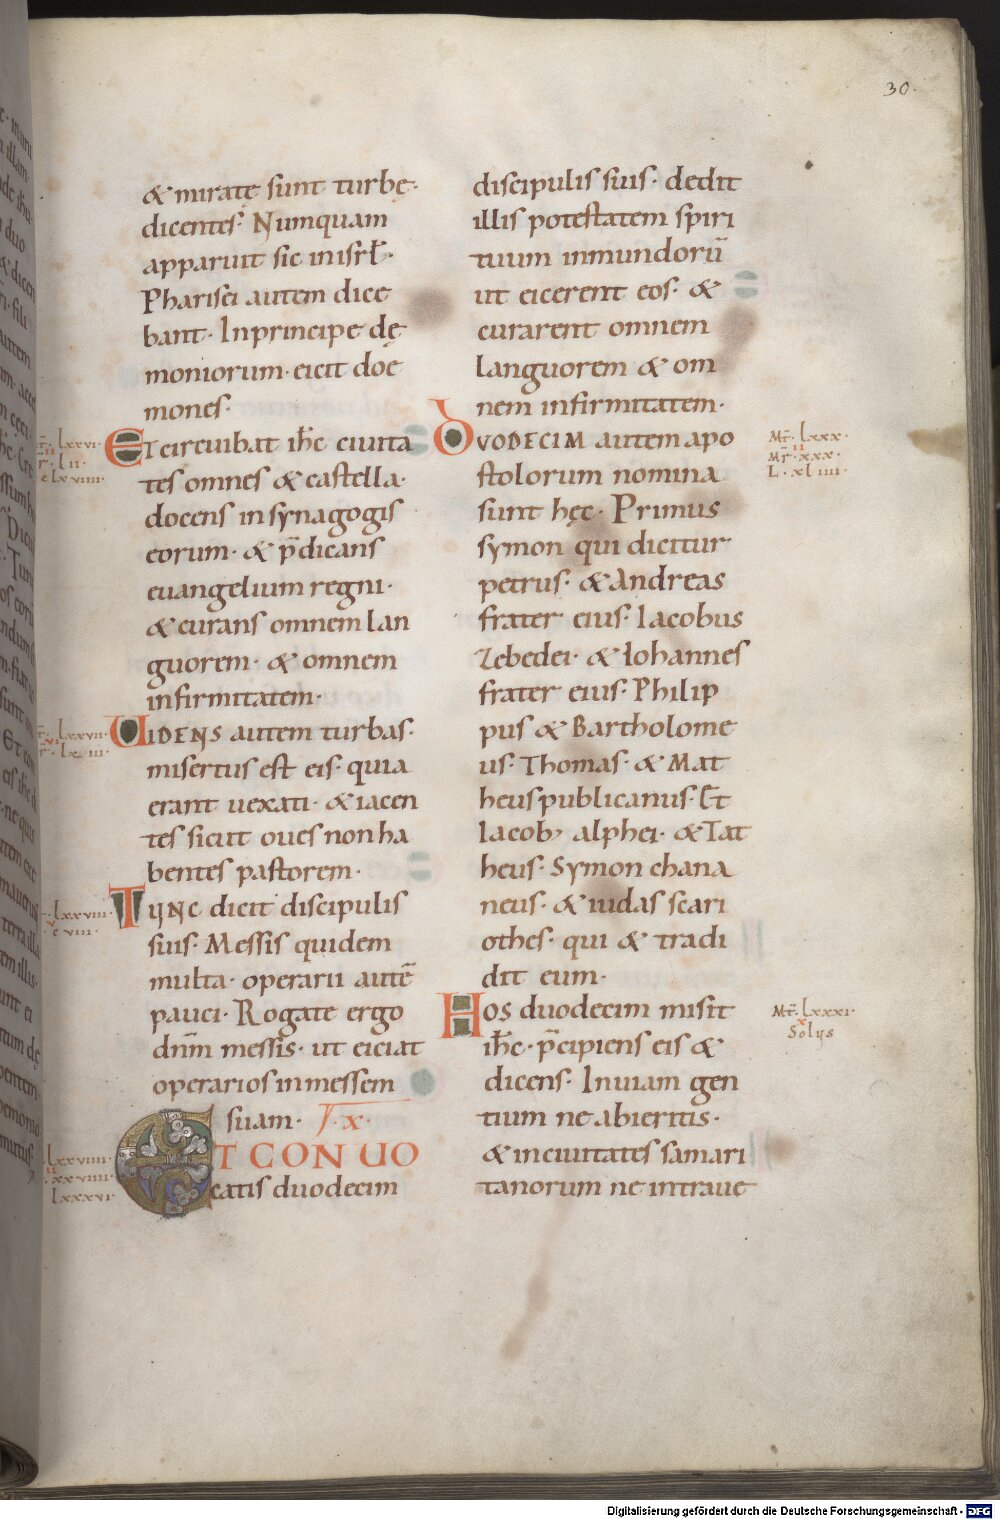 30.
& miratę sunt turbę·
dicentes· Numquam
apparuit sic inisrł·
Pharisei autem dice
bant· Inprincipe dę
moniorum· eicit doe
mones·
Et circuibat ihc ciuita
tes omnes & castella·
docens in synagogis
eorum· & p̄dicans
euangelium regni·
& curans omnem lan
guorem· & omnem
infirmitatem·
UIDENS autem turbas·
misertus est eis· quia
erant uexati· & iacen
tes sicut oues non ha
bentes pastorem·
TUNC dicit discipulis
suis· Messis quidem
multa· operarii autē
pauci· Rogate ergo
dnm̄ messis· ut eiciat
operarios inmessem
suam· x·
ET CONUO
catis duodecim
discipulis suis· dedit
illis potestatem spiri
tuum inmundorū
ut eicerent eos· &
curarent omnem
languorem & om
nem infirmitatem·
DUODECIM autem apo
stolorum nomina
sunt hęc· Primus
symon qui dicitur
petrus· & Andreas
frater eius· Iacobus
Zebedei· & Iohannes
frater eius· Philip
pus & Bartholome
us· Thomas· & Mat
heus publicanus· Et
Iacob' alphei· & Tat
heus· Symon chana
neus· & iudas scari
othes· qui & tradi
dit eum·
HOS duodecim misit
ihc· p̄cipiens eis &
dicens· In uiam gen
tium ne abieritis·
& inciuitates samari
tanorum ne intraue
Mt̄· lxxx·
II
Mr̄· xxx·
L· xliiii·
Mt̄· lxxxi·
x
Solus
Digitalisierung gefördert durch die Deutsche Forschungsgemeinschaft - DFG